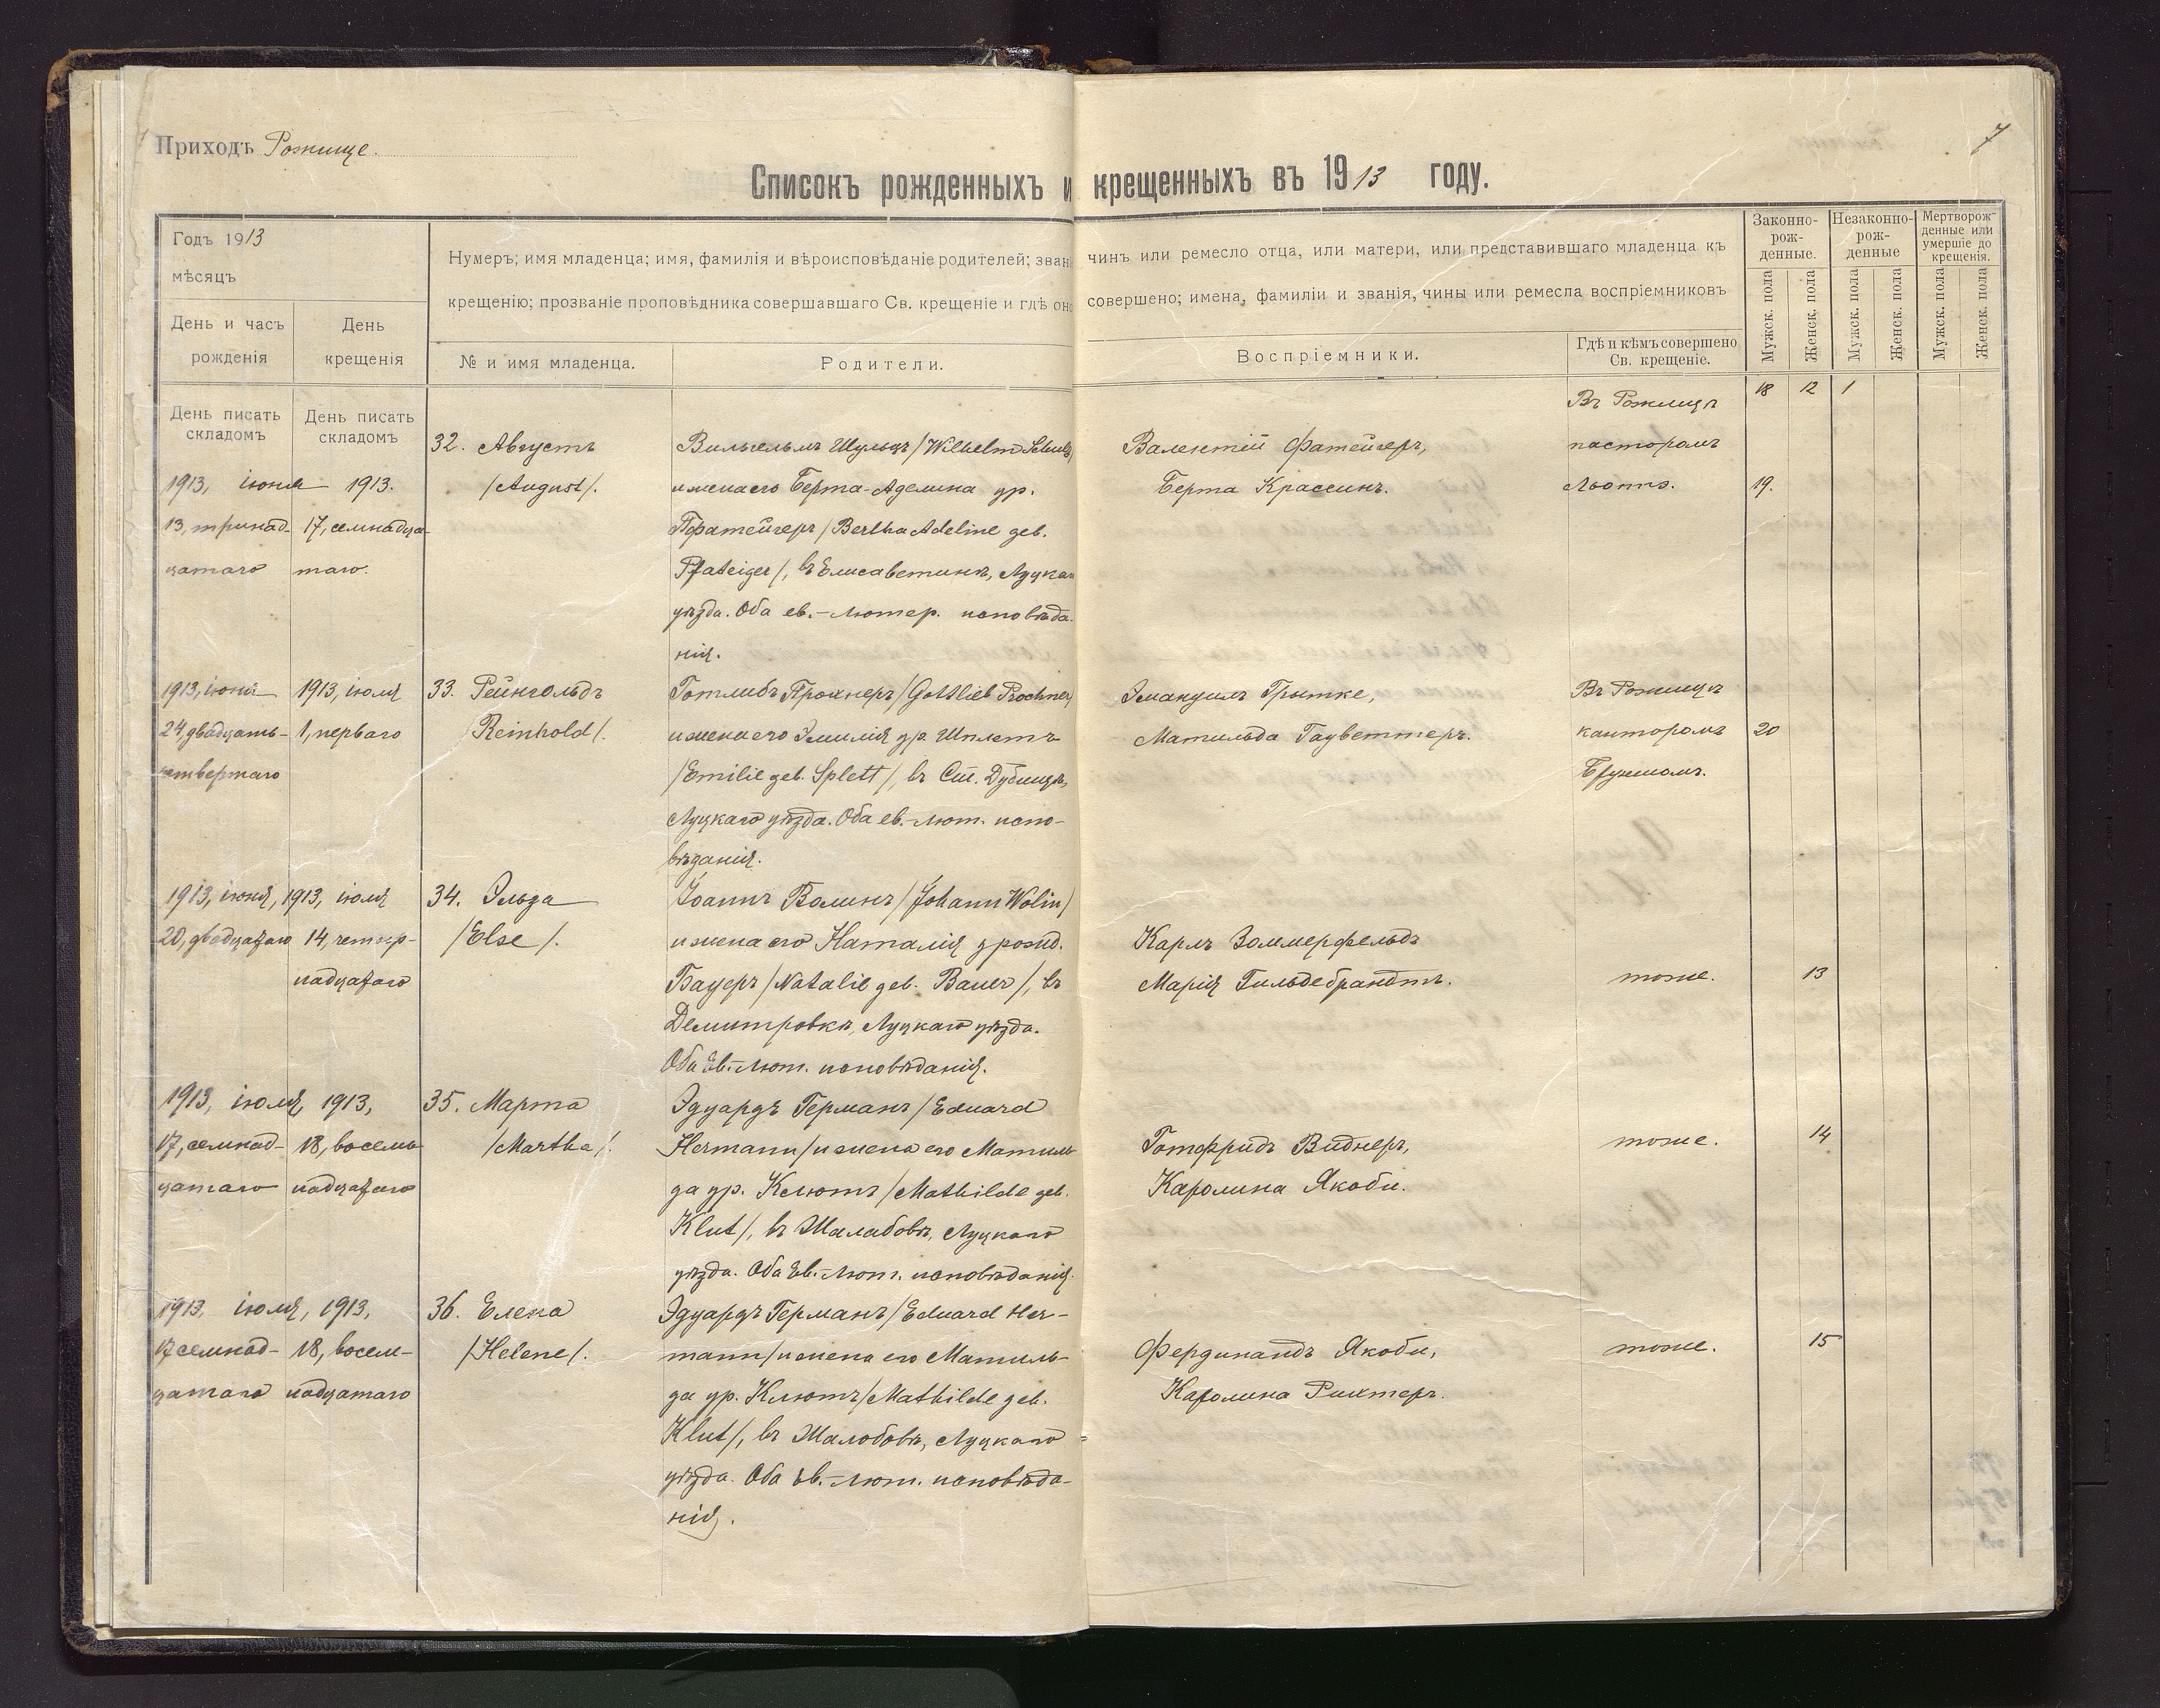 Приходъ Рожище.
7
Списокъ рожденныхъ и крещенныхъ въ 1913 году.
Годъ 1913
мѣсяцъ
День и часъ рожденія
День крещенія
Нумеръ; имя младенца; имя, фамилія и вѣроисповѣданіе родителей; зван чинъ или ремесло отца, или матери, или представившаго младенца къ
крещенію; прозваніе проповѣдника совершавшаго Св. крещеніе и гдѣ оно совершено; имена, фамиліи и званія, чины или ремесла воспріемниковъ
№ и имя младенца.
Родители.
Воспріемники.
Гдѣ и кѣмъ совершено
Св. крещеніе.
Законно-
рож-
денные.
Незаконно-
рож-
денные
Мертворож-
денные или
умершіе до
крещенія.
Мужск. пола
Женск. пола
Мужск. пола
Женск. пола
Мужск. пола
Женск. пола
День писать
складомъ
День писать
складомъ
18 12 1
1913, іюня 1913.
13, тринад- 17, семнадца-
цатаго таго.
32. Августъ
/August/.
Вильгельмъ Шульцъ /Wilhelm Schulz/
и жена его Берта-Аделина ур.
Пфатейгеръ /Bertha Adeline geb.
Pfateiger/, въ Елисаветинѣ, Луцкаго
уѣзда. Оба ев.-лютер. исповѣда-
нія.
Валентій Фатейгеръ,
Берта Крассинъ.
Въ Рожищѣ
пасторомъ
19.
1913, іюня 1913, іюля
24, двадцать- 1, перваго
четвертаго
33. Рейнгольдъ
/Reinhold/.
Готлибъ Прохнеръ /Gottlieb Prochner/
и жена его Эмилія ур. Шплетъ
/Emilie geb. Splett/, въ Ст. Дубищѣ,
Луцкаго уѣзда. Оба ев.-лют. испо-
вѣданія.
Эмануилъ Грытке,
Матильда Гауветтеръ.
Въ Рожищѣ
канторомъ
20
1913, іюня, 1913, іюля
20, двадцатаго 14, четыр-
надцатаго
34. Эльза
/Else/.
Іоаннъ Волинъ /Johann Wolin/
и жена его Наталія урожд.
Бауеръ /Natalie geb. Bauer/, въ
Демитровкѣ, Луцкаго уѣзда.
Оба Ев.-лют. исповѣданія.
Карлъ Зоммерфельдъ
Марія Гильдебрандтъ.
тоже.
13
1913, іюля, 1913,
17, семнад- 18, восемь
цатаго надцатаго
35. Марта
/Martha/.
Эдуардъ Германъ /Eduard
Hermann/ и жена его Матиль-
да ур. Клютъ /Mathilde geb.
Klut/, въ Шалабовѣ, Луцкаго
уѣзда. Оба Ев.-лют. исповѣданія.
Готфридъ Виднеръ,
Каролина Якоби.
тоже.
14
1913, іюля, 1913,
17 семнад- 18, восем-
цатаго надцатаго
36. Елена
/Helene/.
Эдуардъ Германъ /Eduard Her-
mann/ и жена его Матиль-
да ур. Клютъ /Mathilde geb.
Klut/, въ Шалобовѣ, Луцкаго
уѣзда. Оба Ев.-лют. исповѣда-
нія.
Фердинандъ Якоби,
Каролина Рихтеръ.
тоже.
15